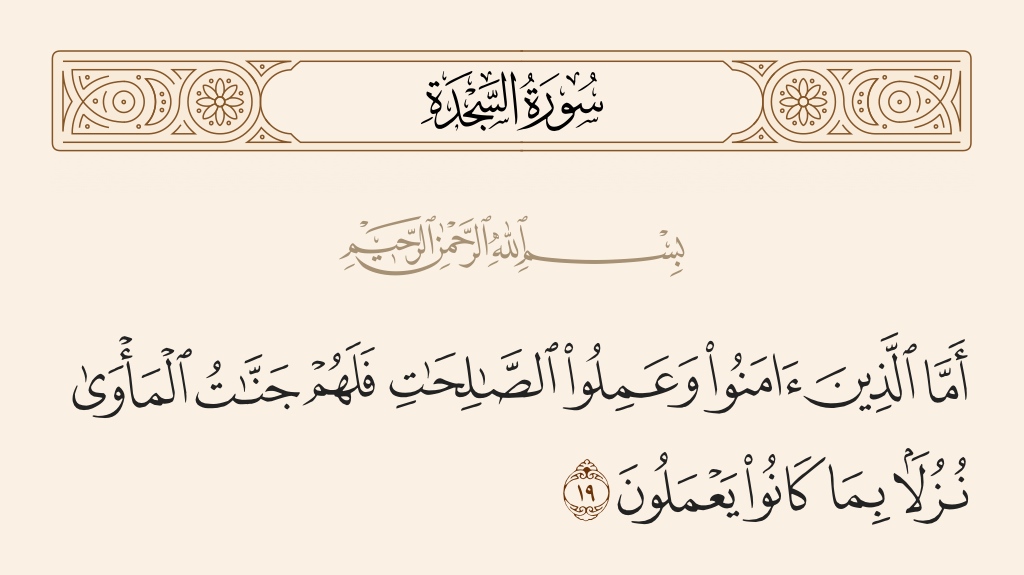 سُورَةُ السَّجْدَةِ
بِسْمِ ٱللَّهِ ٱلرَّحْمَٰنِ ٱلرَّحِيمِ
أَمَّا ٱلَّذِينَ ءَامَنُوا۟ وَعَمِلُوا۟ ٱلصَّـٰلِحَـٰتِ فَلَهُمْ جَنَّـٰتُ ٱلْمَأْوَىٰ
نُزُلًۢا بِمَا كَانُوا۟ يَعْمَلُونَ ١٩